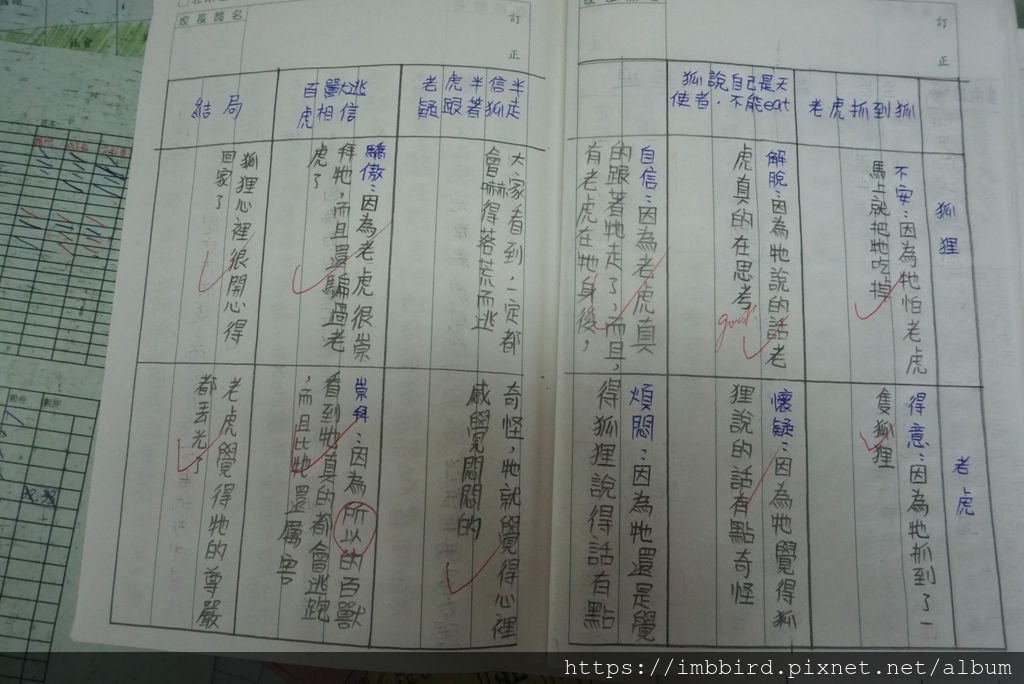 訂正
狐狸
老虎
老虎抓到狐
不安：因為牠怕老虎
馬上就把牠吃掉
得意：因為牠抓到了一
隻狐狸
狐說，自己是天
使者，不能eat
解脫：因為牠說的話老
虎真的在思考
good!
懷疑：因為牠覺得狐
狸說的話有點奇怪
自信：因為老虎真
的跟著牠走了，而且，
有老虎在牠身後，
煩悶：因為牠還是覺
得狐狸說得話有點
家長簽名
訂正
老虎半信半
疑跟著狐走
大家看到，一定都
會嚇得落荒而逃
奇怪，牠就覺得心裡
感覺悶悶的
百獸逃
虎相信
驕傲：因為老虎很崇
拜牠，而且還騙過老
虎了
崇拜：因為所以的百獸
看到牠真的都會逃跑
，而且比牠還厲害
結局
狐狸心裡很開心得
回家了
老虎覺得牠的尊嚴
都丟光了
https://imbbird.pixnet.net/album